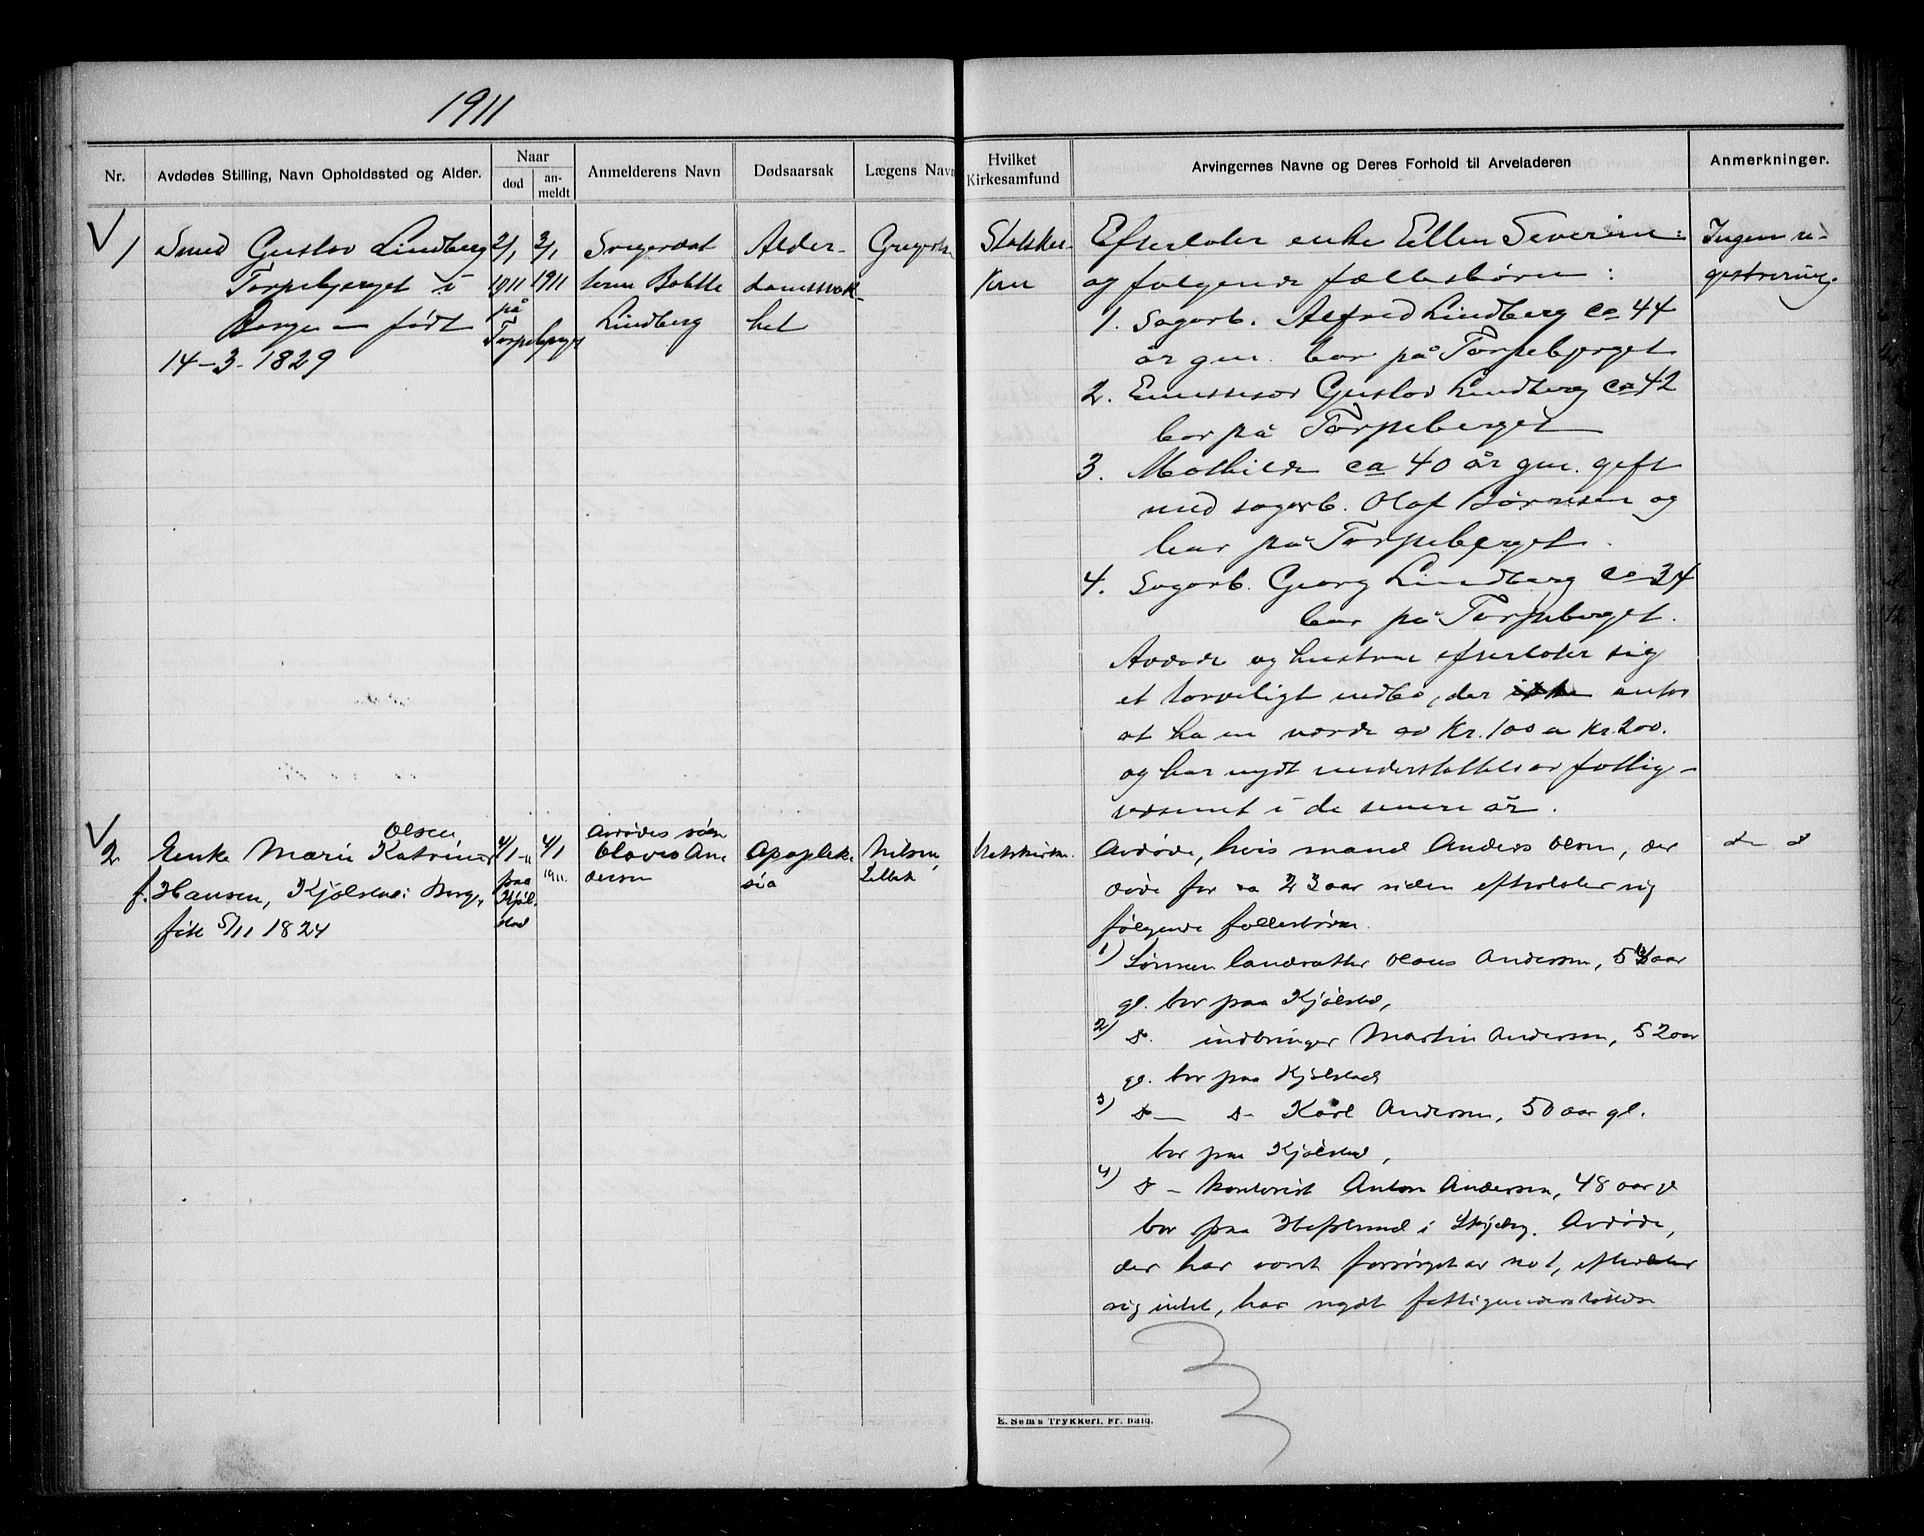 1911
Nr.
Avdødes Stilling, Navn Opholdssted og Alder.
Naar
død
an-
meldt
Anmelderens Navn
Dødsaarsak
Lægens Navn
Hvilket
Kirkesamfund
Arvingernes Navne og Deres Forhold til Arveladeren
Anmerkninger.
1
Smed Gustav Lindberg
Torpebjerget i
Borge — født
14-3-1829
2/1
1911
på
Torpebjerget
3/1
1911
Svigerdat
Lindberg
Alder-
domssvak-
het
Statskir-
Efterlater enke Ellen Severine
og følgende fællesbørn:
1. Sagarb. Alfred Lindberg ca 44
år gm. bor på Torpebjerget
2. Gustav Lindberg ca 42
bor på Torpeberget
3. Mathilde ca 40 år gm. gift
med sagarb. Olaf og
bor på Torpeberget.
4. Sagarb. Georg Lindberg ca 34
bor på Torpeberget.
Avdøde og hustru efterlater sig
et tarveligt indbo, der antas
at ha en værdi av Kr. 100 a Kr. 200.
og har nydt understøttelse av fattig-
væsenet i de senere år.
Ingen re-
gistrering.
2
Olsen
Enke Marie Katrine
f. Hansen, Kjølstad i Borge,
født 5/11 1824
4/1-11
paa
Kjøl-
stad
4/1
1911.
Avdødes søn
Olaves An
dersen
Apoplek-
sia
Nilsen,
Statskirken.
Avdøde, hvis mand Anders Olsen, der
døde for ca 23 aar siden efterlater sig
følgende fællesbørn.
1) Sønnen landratter Olaus Andersen, aar
gl. bor paa Kjølstad,
2) d. indbringer Martin Andersen, 52 aar
gl. bor paa Kjølstad
3) d— d- Karl Andersen, 50 aar gl.
bor paa Kjølstad,
4) d— kontorist Anton Andersen, 48 aar gl
bor paa Hafslund i Skjeberg. Avdøde,
der har været forsørget av no 1, efterlater
sig intet, har nydt fattigunderstøttelse
do d
3
E. Sem's Trykkeri, Fr. hald.